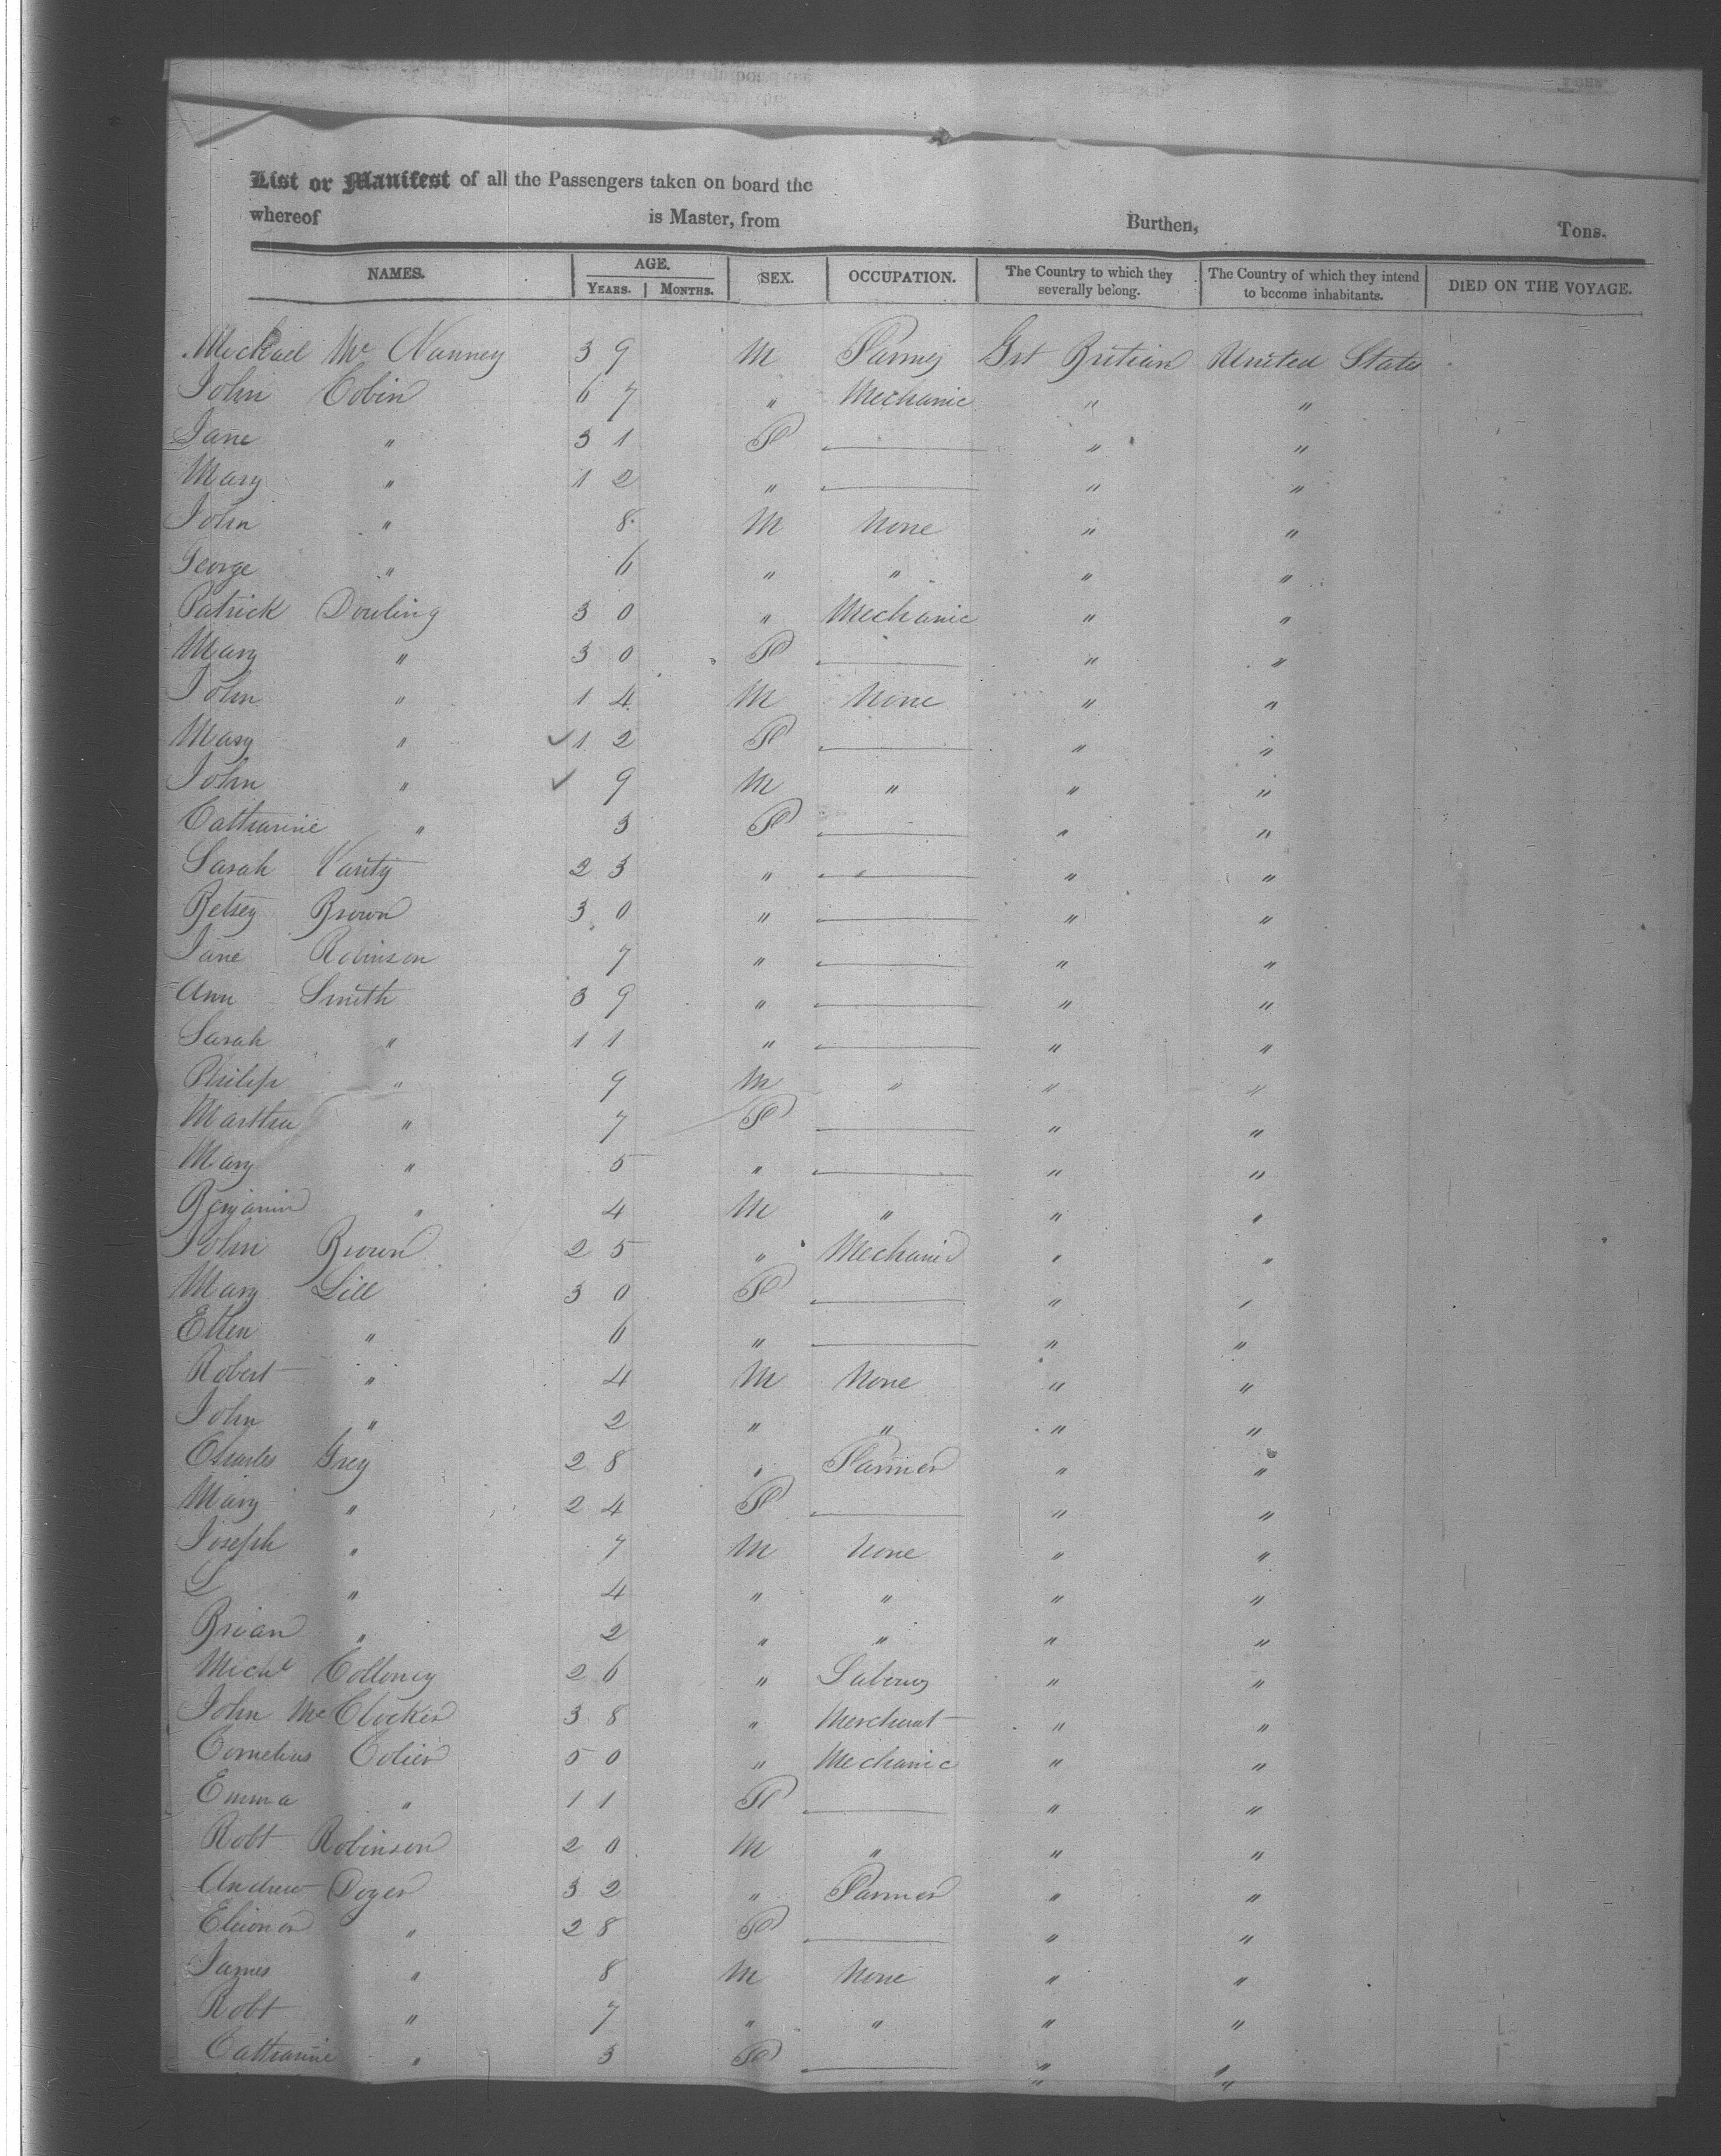 List or Manifest of all the Passengers taken on board the
whereof is Master, from Burthen, Tons.
NAMES. AGE. YEARS. MONTHS. SEX. OCCUPATION. The Country to which they severally belong. The Country of which they intend to become inhabitants. DIED ON THE VOYAGE.
Michael Mc Nanney 39 M Grt Britian United States
John Cobin 67 " Mechanic " "
Jane " 31 F " "
Mary " 12 " " "
John " 8 M None " "
George " 6 " " " "
Patrick Dowling 30 " Mechanic " "
Mary " 30 F " "
John " 14 M None " "
Mary " 12 F " "
John " 9 M " " "
Catharine " 3 F " "
Sarah 23 " " "
Betsey Brown 30 " " "
Jane Robinson 7 " " "
Ann Smith 39 " " "
Sarah " 11 " " "
Philip " 9 M " " "
Martha " 7 F " "
Mary " 5 " " "
Benjamin " 4 M " " "
John Brown 25 " Mechanic " "
Mary Lill 30 F " "
Ellen " 6 " " "
Robert " 4 M None " "
John " 2 " " " "
Charles Grey 28 " Farmer " "
Mary " 24 F " "
Joseph " 7 M None " "
S " 4 " " " "
Brian " 2 " " " "
Michl Colloney 26 " " "
John McClocker 38 " Merchant " "
Cornelius Colier 50 " Mechanic " "
Emma " 11 F " "
Robt Robinson 20 M " " "
Andrew Doyer 32 " Farmer " "
Eleionor " 28 F " "
James " 8 M None " "
Robt " 7 " " " "
Catharine " 3 F " "
" "